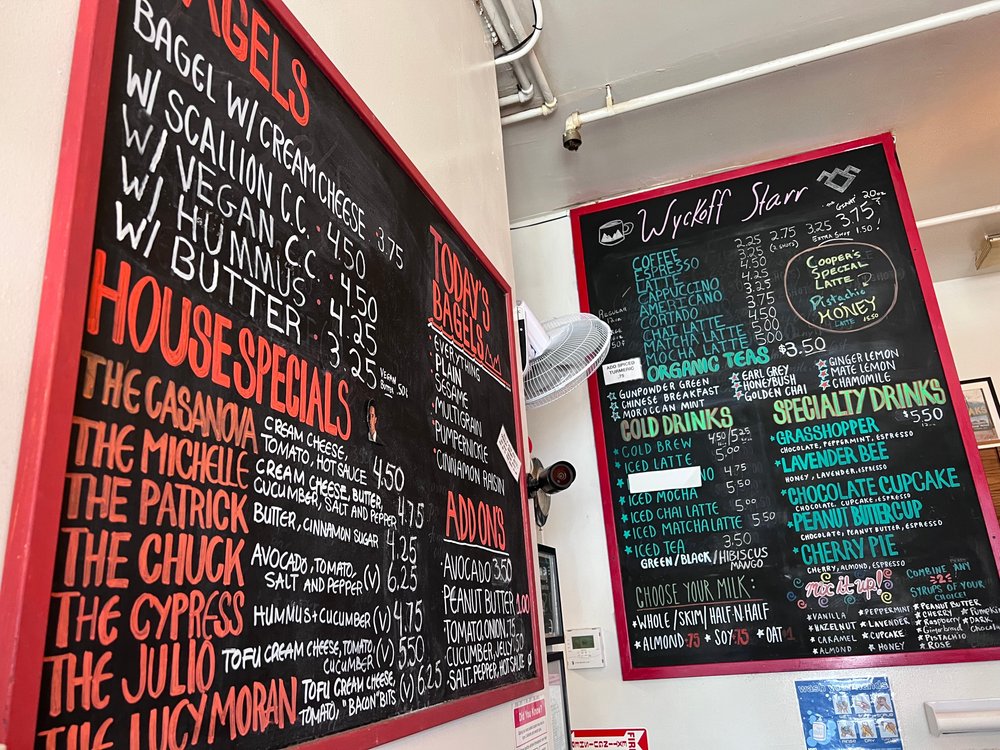 BAGELS
BAGEL W/ CREAM CHEESE . 3.75
W/ SCALLION C.C. . 4.50
W/ VEGAN C.C. . 4.50
W/ HUMMUS . 4.25
W/ BUTTER . 3.25
VEGAN BUTTER .50¢
HOUSE SPECIALS
THE CASANOVA CREAM CHEESE, TOMATO, HOT SAUCE 4.50
THE MICHELLE CREAM CHEESE, BUTTER, CUCUMBER, SALT AND PEPPER 4.75
THE PATRICK BUTTER, CINNAMON SUGAR 4.25
THE CHUCK AVOCADO, TOMATO, SALT AND PEPPER (V) 6.25
THE CYPRESS HUMMUS + CUCUMBER (V) 4.75
THE JULIO TOFU CREAM CHEESE, TOMATO, CUCUMBER (V) 5.50
THE LUCY MORAN TOFU CREAM CHEESE, TOMATO, "BACON" BITS (V) 6.25
TODAY'S BAGELS
EVERYTHING
PLAIN
SESAME
MULTIGRAIN
PUMPERNICKLE
CINNAMON RAISIN
ADD ON'S
AVOCADO 3.50
PEANUT BUTTER 1.00
TOMATO, ONION .75
CUCUMBER, JELLY .50
SALT, PEPPER, HOT SAUCE
Wyckoff Starr
20 oz
COFFEE 2.25 2.75 3.25 3.75
ESPRESSO 3.25 (2 SHOTS) EXTRA SHOT 1.50
LATTE 4.50
CAPPUCCINO 4.25
AMERICANO 3.25
CORTADO 3.75
CHAI LATTE 4.50
MATCHA LATTE 5.00
MOCHA LATTE 5.00
COOPER'S SPECIAL LATTE
Pistachio HONEY
LATTE 5.50
ADD SPICED TURMERIC .75
ORGANIC TEAS $3.50
GUNPOWDER GREEN
CHINESE BREAKFAST
MOROCCAN MINT
EARL GREY
HONEYBUSH
GOLDEN CHAI
GINGER LEMON
MATE LEMON
CHAMOMILE
COLD DRINKS
COLD BREW 4.50/5.25
ICED LATTE 5.00
NO 4.75
ICED MOCHA 5.50
ICED CHAI LATTE 5.00
ICED MATCHA LATTE 5.50
ICED TEA 3.50
GREEN/BLACK/HIBISCUS MANGO
CHOOSE YOUR MILK:
WHOLE/SKIM/HALF-N-HALF
ALMOND .75 SOY .75 OAT $1
SPECIALTY DRINKS
$5.50
GRASSHOPPER
CHOCOLATE, PEPPERMINT, ESPRESSO
LAVENDER BEE
HONEY, LAVENDER, ESPRESSO
CHOCOLATE CUPCAKE
CHOCOLATE, CUPCAKE, ESPRESSO
PEANUT BUTTER CUP
CHOCOLATE, PEANUT BUTTER, ESPRESSO
CHERRY PIE
CHERRY, ALMOND, ESPRESSO
moc it up!
COMBINE ANY 2 SYRUPS OF YOUR CHOICE!
VANILLA
HAZELNUT
CARAMEL
ALMOND
PEPPERMINT
LAVENDER
CUPCAKE
HONEY
PEANUT BUTTER
CHERRY
Raspberry
Gingerbread
PISTACHIO
ROSE
Pumpkin
DARK Chocolate
Did You Know?
FIRE